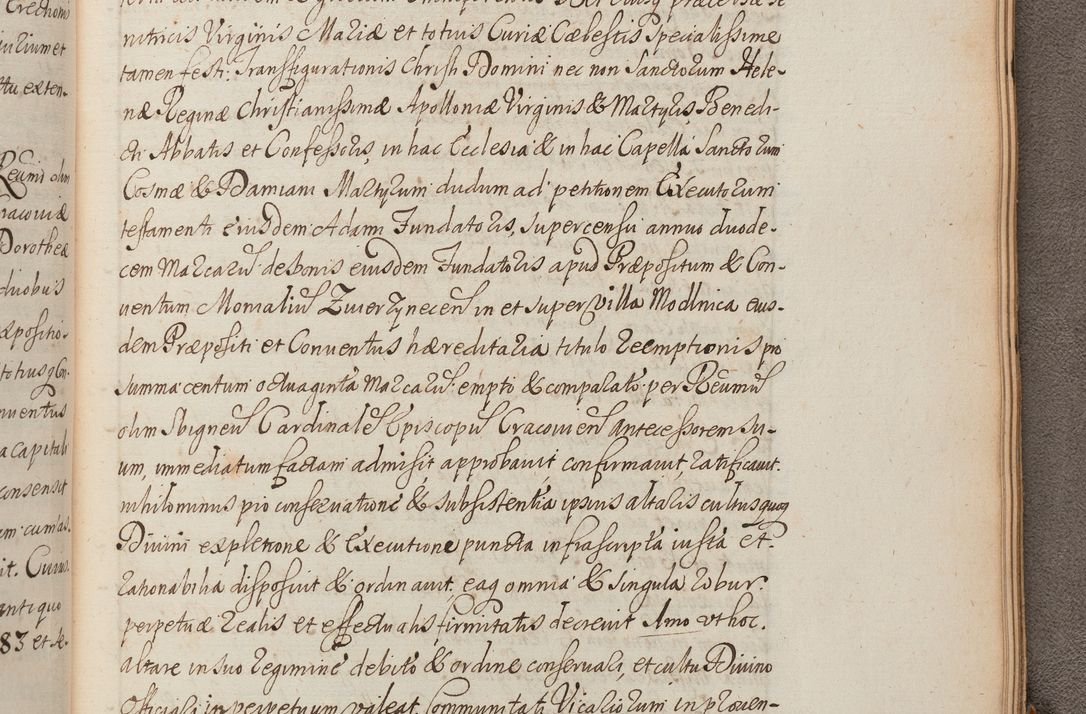 Erectioni
nutricis Virginis Mariæ et totius Curiæ Cælestis Specialissime
tamen fest: Transfigurationis Christi Domini nec non Sanctorum Hele-
næ Reginæ Christianissimæ Apolloniæ Virginis & Martyris, Benedi-
cti Abbatis et Confessoris, in hac Ecclesia & in hac Capella Sanctorum
Cosmæ & Damiani Martyrum dudum ad petitionem Executorum
testamenti eiusdem Adami Fundatoris, super censu annuo duode-
cem Marcarum de bonis eiusdem Fundatoris apud Præpositum & Con-
ventum Monialium Zwierzynecen in et super villa Modlnica eius-
dem Præpositi et Conventus hæreditaria titulo reemptionis pro
summa centum octuaginta Marcarum empto & comparato per Reumum
olim Sbigneum Cardinalem Episcopum Cracovien Antecessorem Su-
um, immediatum factam admisit approbavit confirmavit, ratificavit.
nihilominus pro conservatione & subsistentia ipsius altaris cultusque
Divini expletione & Executione puncta infrascripta iusta et
rationabilia disposuit & ordinavit. eaq omnia & singula robur
perpetuæ realis et effectualis firmitatis decrevit Imo ut hoc
altare in suo regimine debito & ordine conservari, et cultu Divino
Officiari in perpetuum valeat, Communitati Vicariorum in proven-
ituum et
exten-
Reumi olim
racoviæ
Dorotheæ
duobus
xpositio-
totiusq Con-
nventus
a capitali
consensit
um cum as-
it. Cuius
antiquo
83 et se-